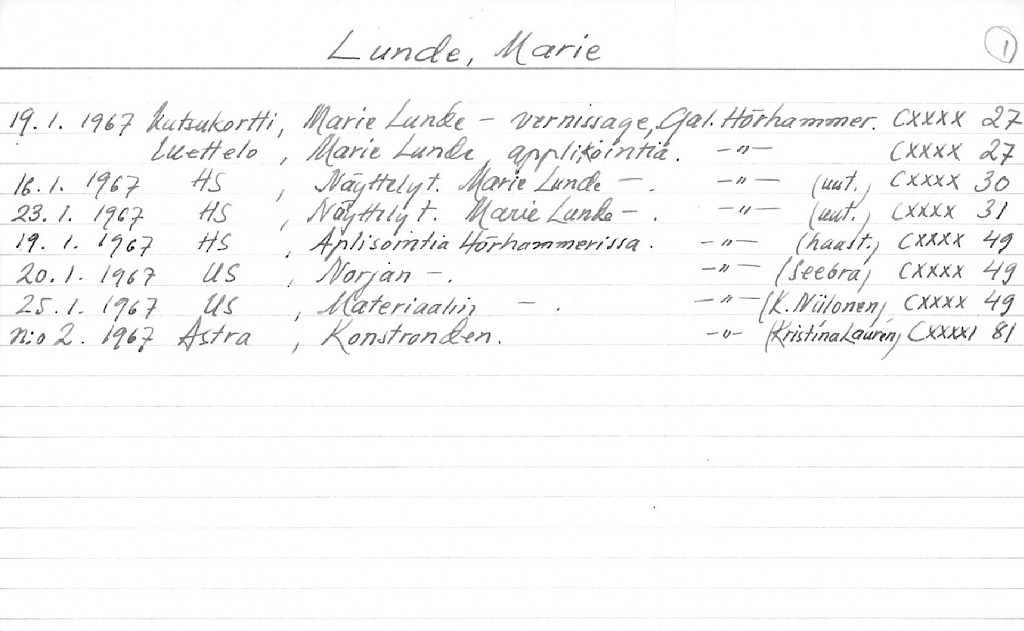 Lunde, Marie 1
19.1.1967 Kutsukortti, Marie Lunde - vernissage, Gal. Hörhammer. CXXXX 27
Luettelo, Marie Lunde, applikointia. -"- CXXXX 27
16.1.1967 HS, Näyttelyt. Marie Lunde -. -"- (uut.) CXXXX 30
23.1.1967 HS, Näyttelyt. Marie Lunde -. -"- (uut.) CXXXX 31
19.1.1967 HS, Aplisointia Hörhammerissa. -"- (haast.) CXXXX 49
20.1.1967 US, Norjan -. -"- (Seebra) CXXXX 49
25.1.1967 US, Materiaalin - . -"- (K. Niilonen) CXXXX 49
n:o 2. 1967 Astra, Konstronden. -"- (Kristina Laurén) CXXXXI 81